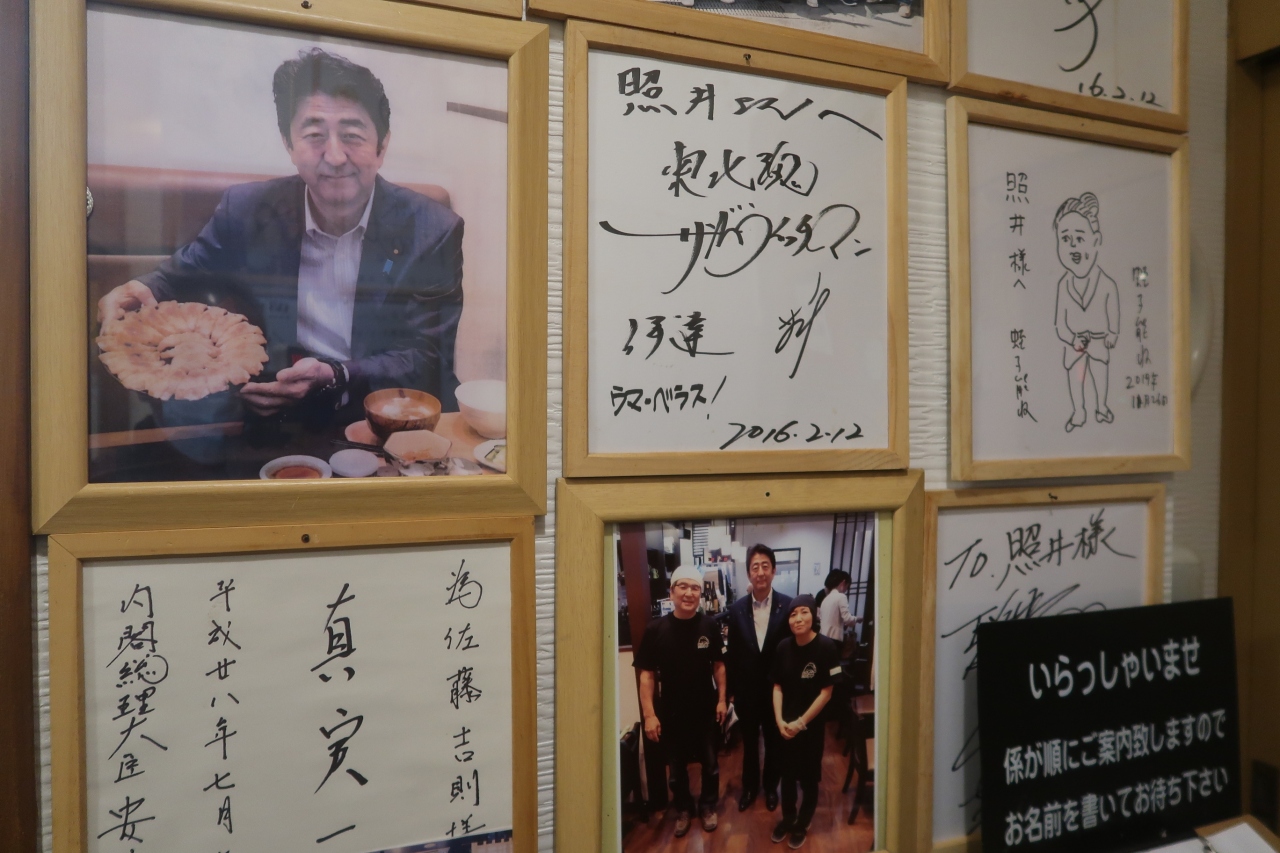 16.2.12
照井さんへ
東北魂
サンドウィッチマン
伊達
ウマ・ベラス!
2016.2.12
照井様へ
蛭子能収
蛭子能収
2014年
為佐藤吉則様
真実一
平成廿八年七月
内閣総理大臣 安
To.照井様
いらっしゃいませ
係が順にご案内致しますので
お名前を書いてお待ち下さい